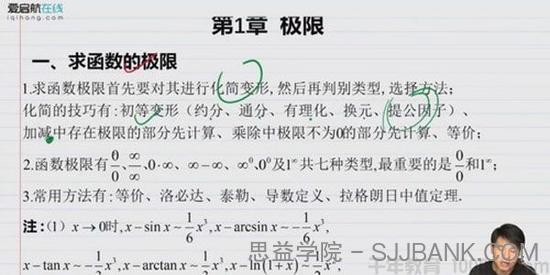 爱启航在线
iqihang.com
第1章 极限
一、求函数的极限
1.求函数极限首先要对其进行化简变形,然后再判别类型,选择方法;
化简的技巧有:初等变形（约分、通分、有理化、换元、提公因子）、
加减中存在极限的部分先计算、乘除中极限不为0的部分先计算、等价;
2.函数极限有 0/0、∞/∞、0·∞、∞−∞、∞⁰、0⁰及1^∞共七种类型,最重要的是 0/0 和1^∞;
3.常用方法有:等价、洛必达、泰勒、导数定义、拉格朗日中值定理.
注:(1) x→0时, x−sin x ~ 1/6 x³, x−arcsin x ~ −1/6 x³,
x−tan x ~ −1/3 x³, x−arctan x ~ 1/3 x³, x−ln(1+x) ~ 1/2 x²,
思益学院 - SJJBANK.COM